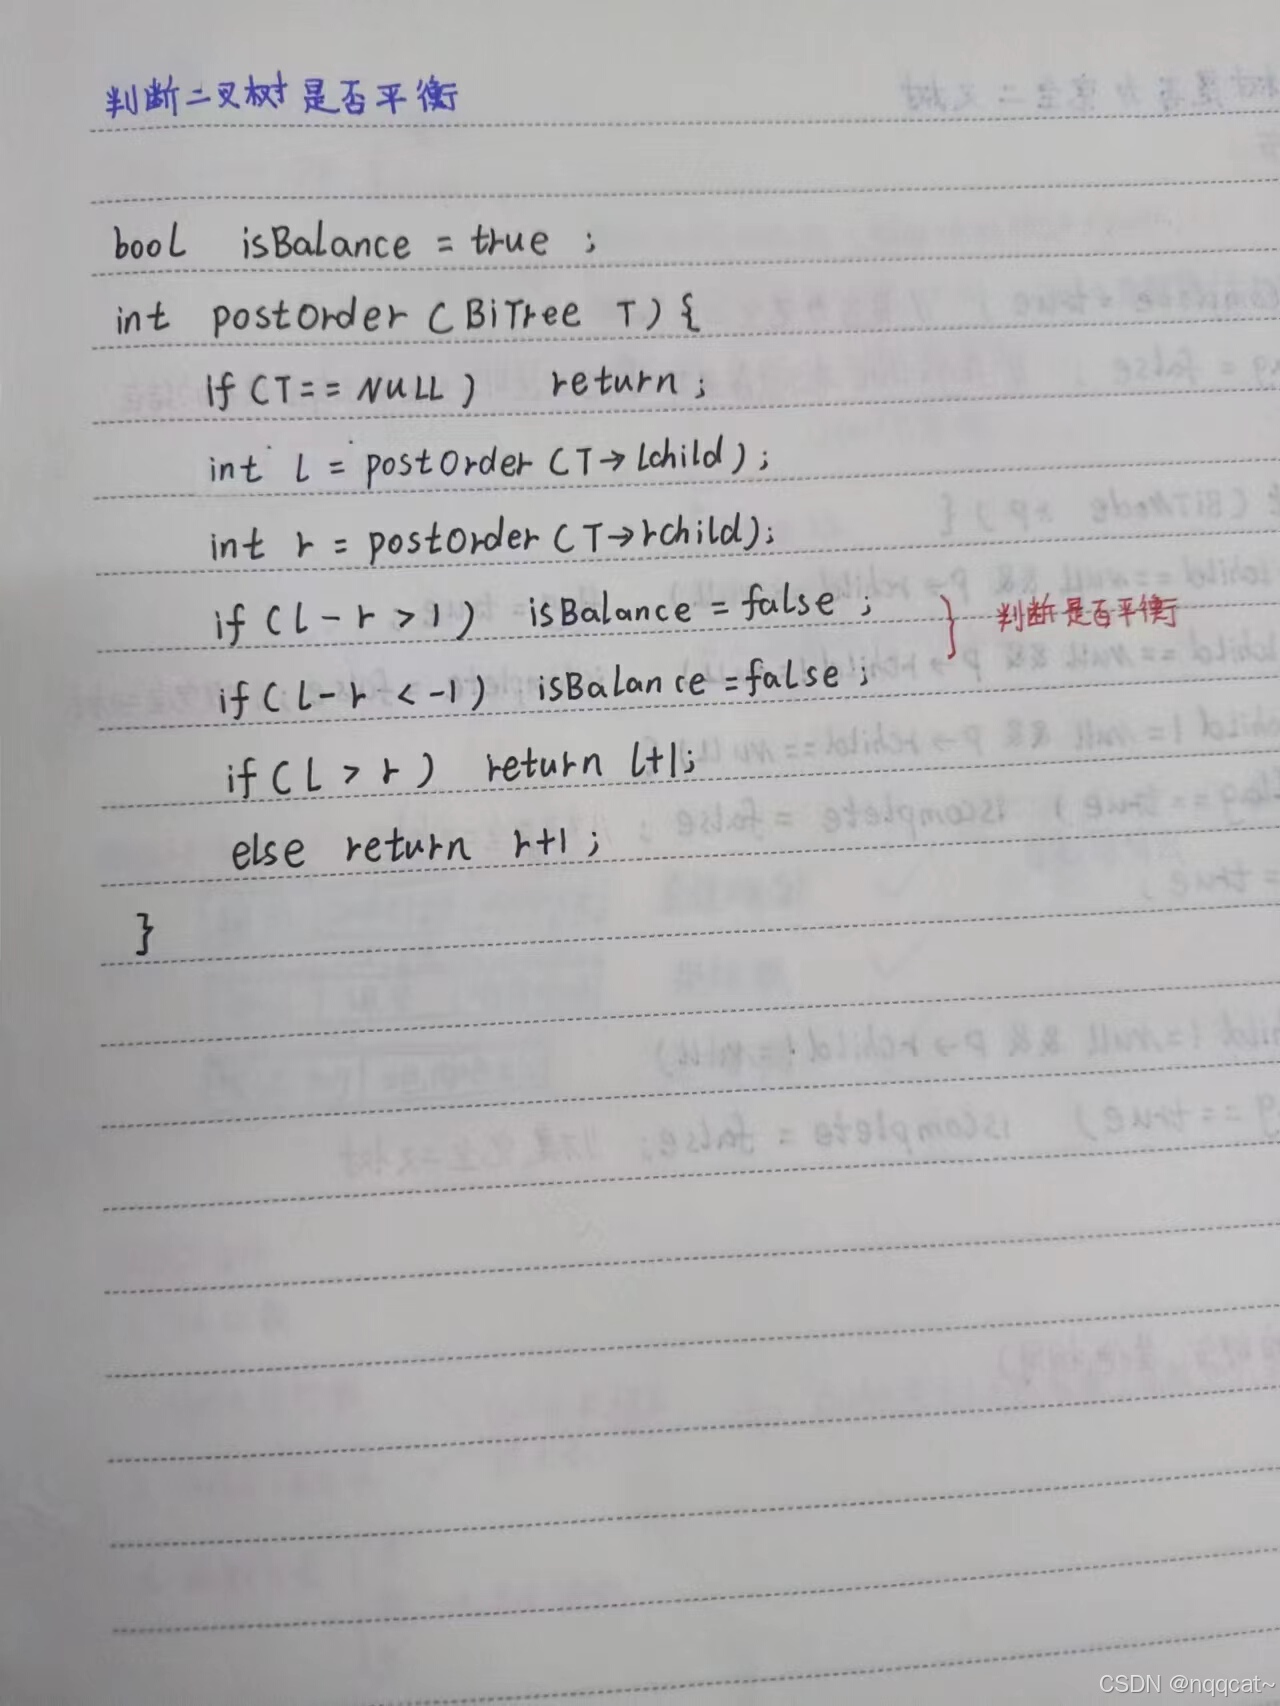 判断二叉树是否平衡
bool isBalance = true ;
int postOrder (BiTree T) {
if (T == NULL) return ;
int l = postOrder (T→lchild) ;
int r = postOrder (T→rchild);
if (l - r > 1) isBalance = false ;
判断是否平衡
if (l - r < -1) isBalance = false ;
if (l > r) return l+1;
else return r+1 ;
}
CSDN @nqqcat~